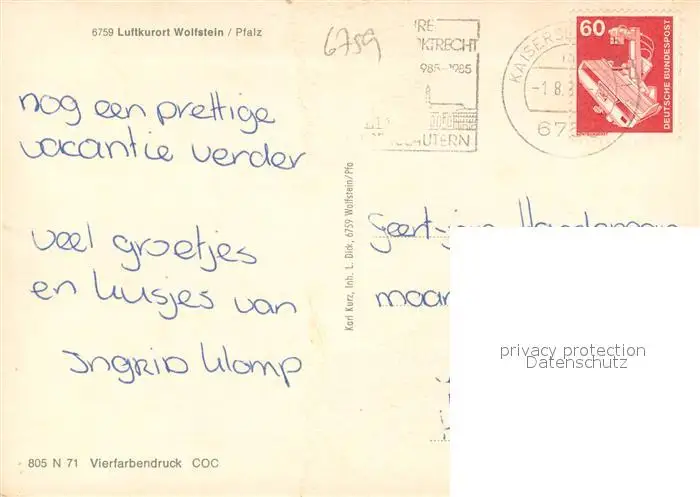 6759 Luftkurort Wolfstein / Pfalz
6759
RE
KTRECHT
985-1985
LAUTERN
KAISERSL
-1.8.8
675
60
DEUTSCHE BUNDESPOST
nog een prettige
vacantie verder
veel groetjes
en kusjes van
Ingrid Klomp
Karl Kurz, Inh. L. Dick, 6759 Wolfstein/Pfa
Geert-jan
maar
privacy protection
Datenschutz
805 N 71 Vierfarbendruck COC